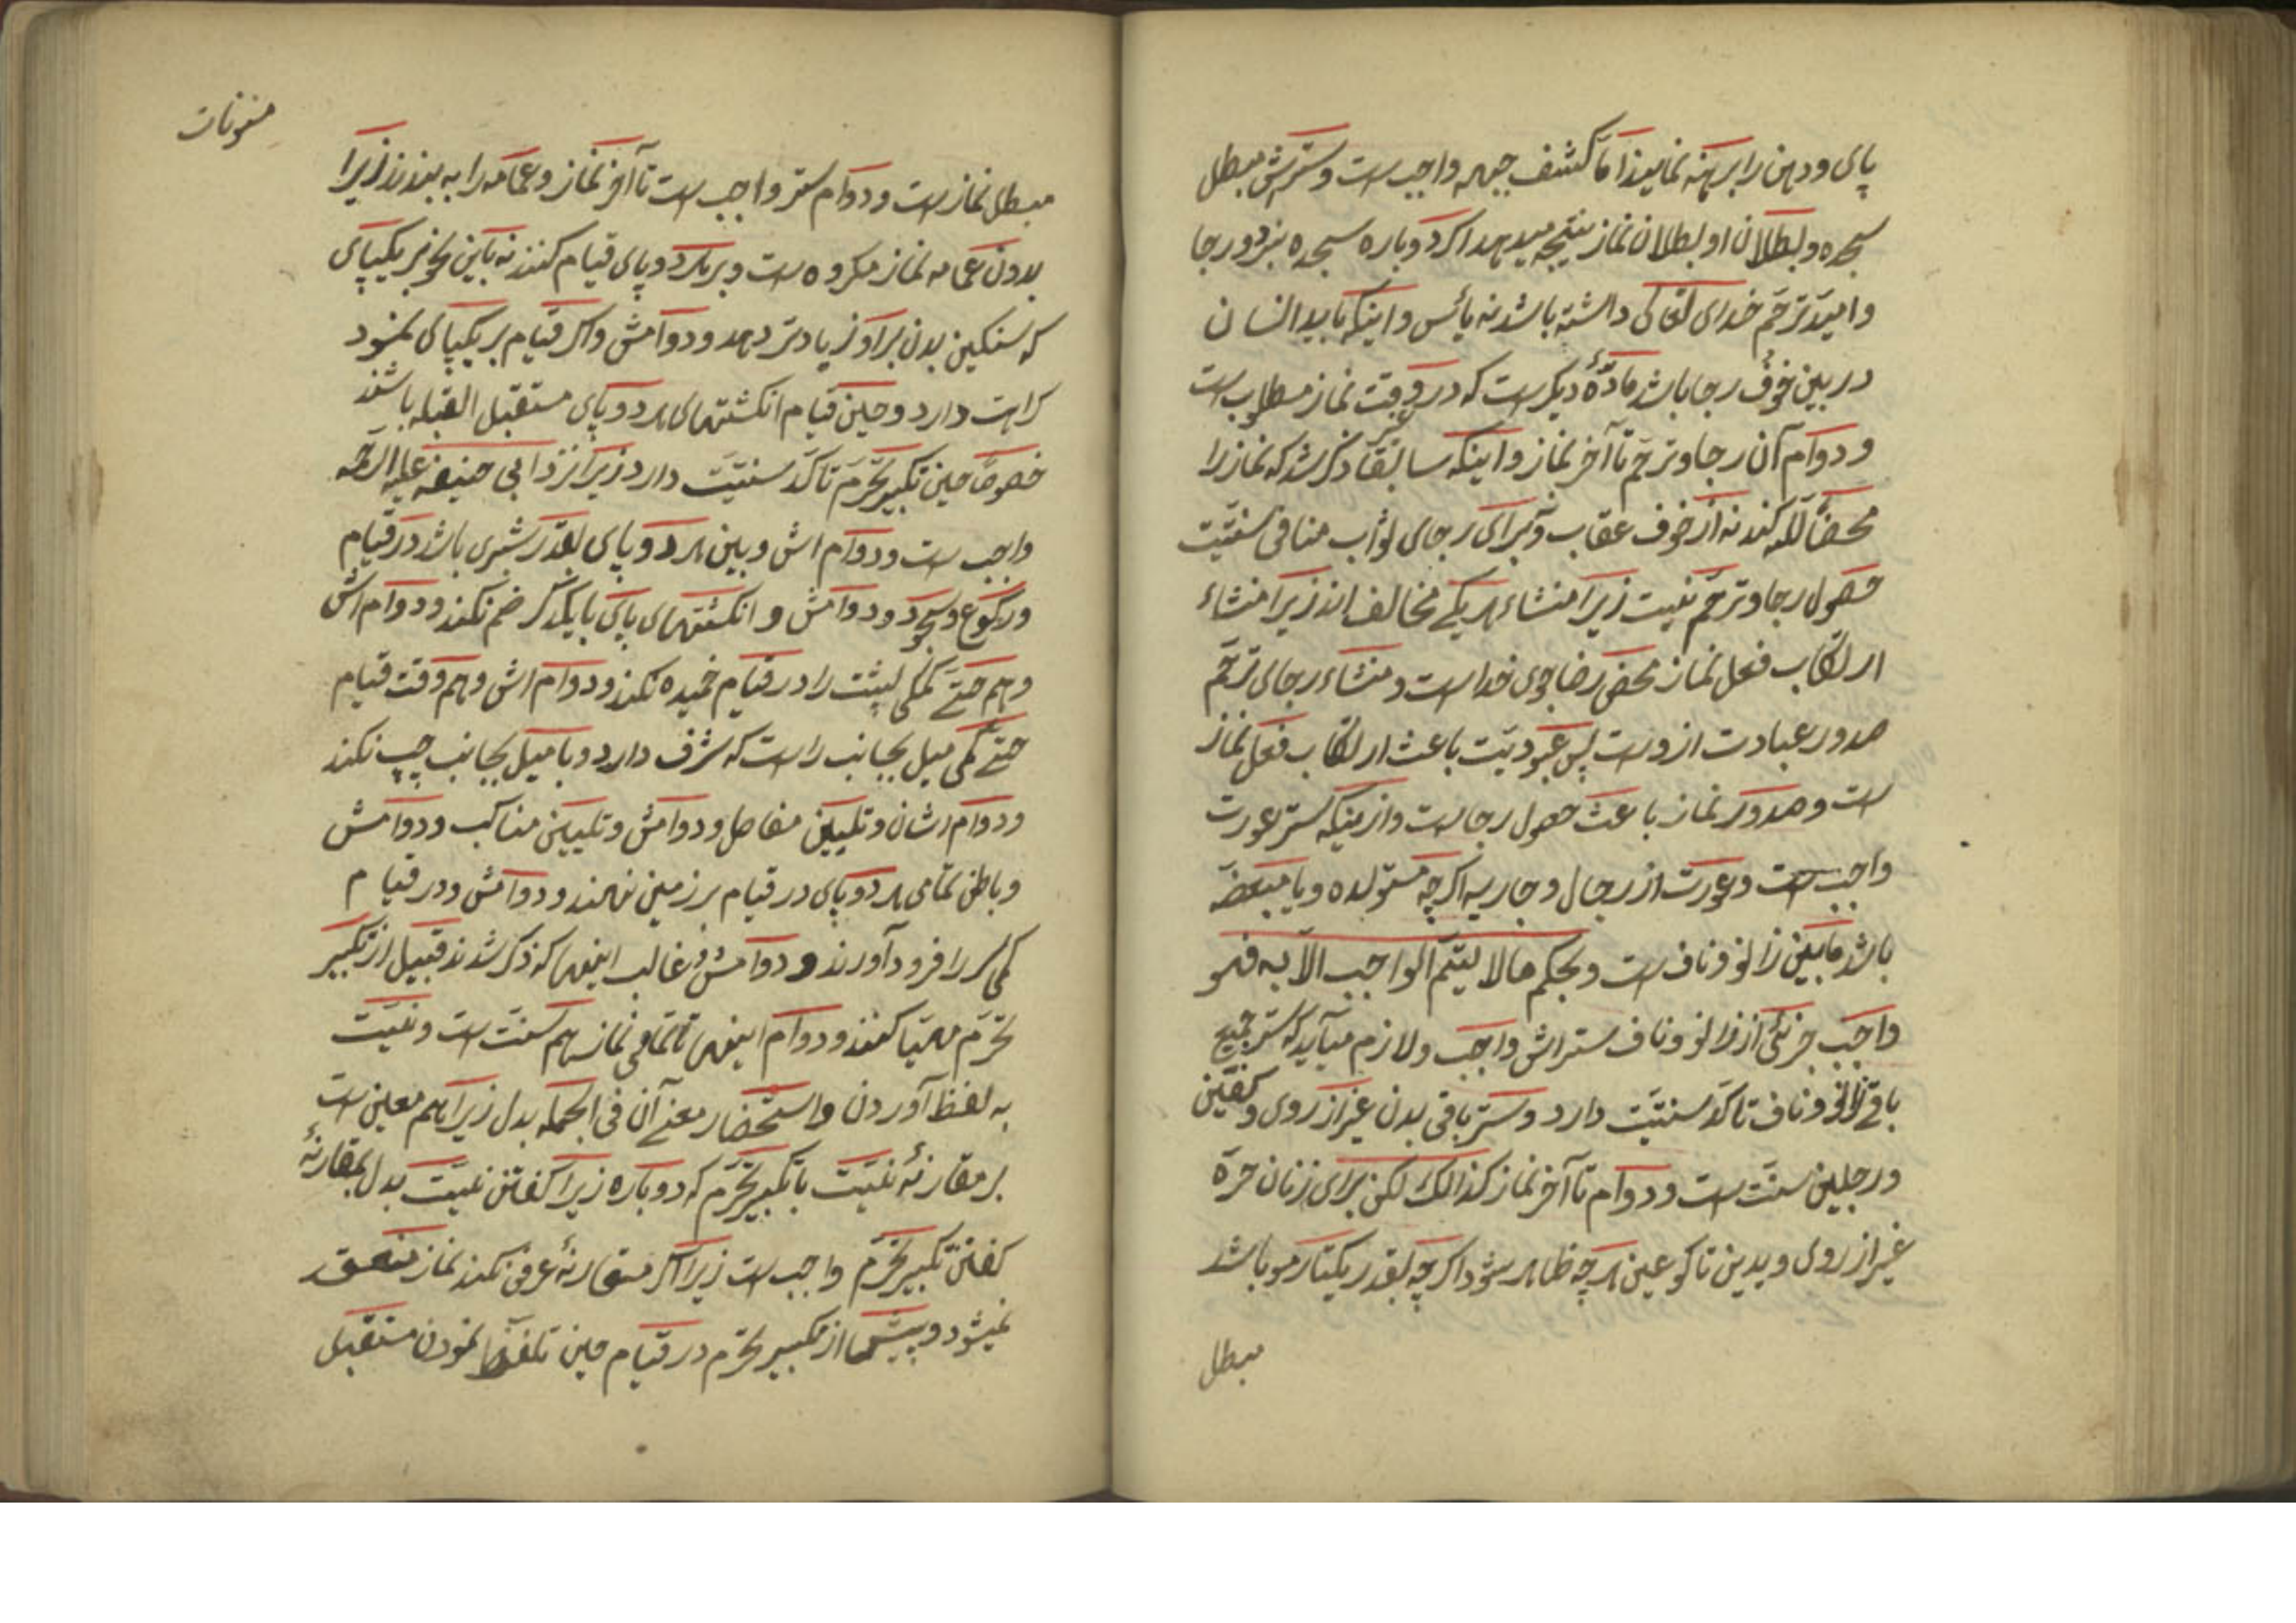 پای و دهن را برهنه نمایند اما کشف جبهه واجب است و سترش مبطل
سجده و بطلان او بطلان نماز نتیجه میدهد اکر دوباره سجده نبرد و رجا
و امید ترحّم خدای تعالی داشته باشد نه یأس و اینکه باید انسان
در بین خوف رجا باشد مادّهٔ دیکر است که در وقت نماز مطلوب است
و دوام آن رجا و ترحّم تا آخر نماز و اینکه سابقاً ذکر شد که نماز را
محضاً لله کند نه از خوف عقاب و برای رجای ثواب منافی سنّیّت
حصول رجا و ترحّم نیست زیرا منشاء هر یکے مخالف اند زیرا منشاء
ارتکاب فعل نماز محض رضا جوی خدا است و منشاء رجای ترحّم
صدور عبادت از وست پس عبودیّت باعث ارتکاب فعل نماز
است و صدور نماز باعث حصول رجا است و از مینکه ستر عورت
واجب است و عورت از رجال و جاریه اکرچه مستولده و یا مبعّضه
باشد مابین زانو و ناف است و بحکم مالا یتمّ الواجب الّا به فهو
واجب جزئی از زانو و ناف ستراش واجب و لازم میآید که ستر جمیع
باقی زانو و ناف تاکّد سنّیّت دارد و ستر باقی بدن غیر از روی و کفّین
و رجلین سنّت است و دوام تا آخر نماز کذالک لکن برای زنان حرّه
غیر از روی و یدین تا کوعین هر چه ظاهر شود اکرچه بقدر یکتار مو باشد
مبطل
مسنونات
مبطل نماز است و دوام ستر واجب است تا آخر نماز و عمامه را به بندند زیرا
بدون عمامه نماز مکروه است و بر هر دو پای قیام کنند نه باین نحو بر یکپای
که سنکین بدن بر او زیادتر دهد و دوامش و اکر قیام بر یکپای نمود
کراهت دارد و حین قیام انکشتهای هر دو پای مستقبل القبله باشند
خصوصاً حین تکبیر تحرّم تاکّد سنّیّت دارد زیرا نزد ابی حنیفه علیه الرحمه
واجب است و دوام اش و بین هر دو پای بقدر شبری باشد در قیام
و رکوع و سجود و دوامش و انکشتهای پای با یکدکر ضم نکند و دوام اش
و هم حتّے کمی پشت را در قیام خمیده نکند و دوام اش و هم وقت قیام
حتّے کمی میل بجانب راست که شرف دارد و یا میل بجانب چپ نکند
و دوام اشان و تلیین مفاصل و دوامش و تلیین مناکب و دوامش
و باطن تمامی هر دو پای در قیام بر زمین نهند و دوامش و در قیام
کمی سر را فرود آورند و دوامش و غالب اینها که ذکر شدند قبیل از تکبیر
تحرّم مهیّا کنند و دوام اینها تا تمامی نماز هم سنّت است و نیّت
به لفظ آوردن و استحضار معنے آن فی الجمله بدل زیرا هم معین است
بر مقارنهٔ نیّت با تکبیر تحرّم که دوباره زیرا کفتن نیّت بدل بمقارنهٔ
کفتن تکبیر تحرّم واجب است زیرا اکر مقارنهٔ عرفی نکند نماز منعقد
نمیشود و پیش از تکبیر تحرّم در قیام حین تلفّظ نمودن مستقبل